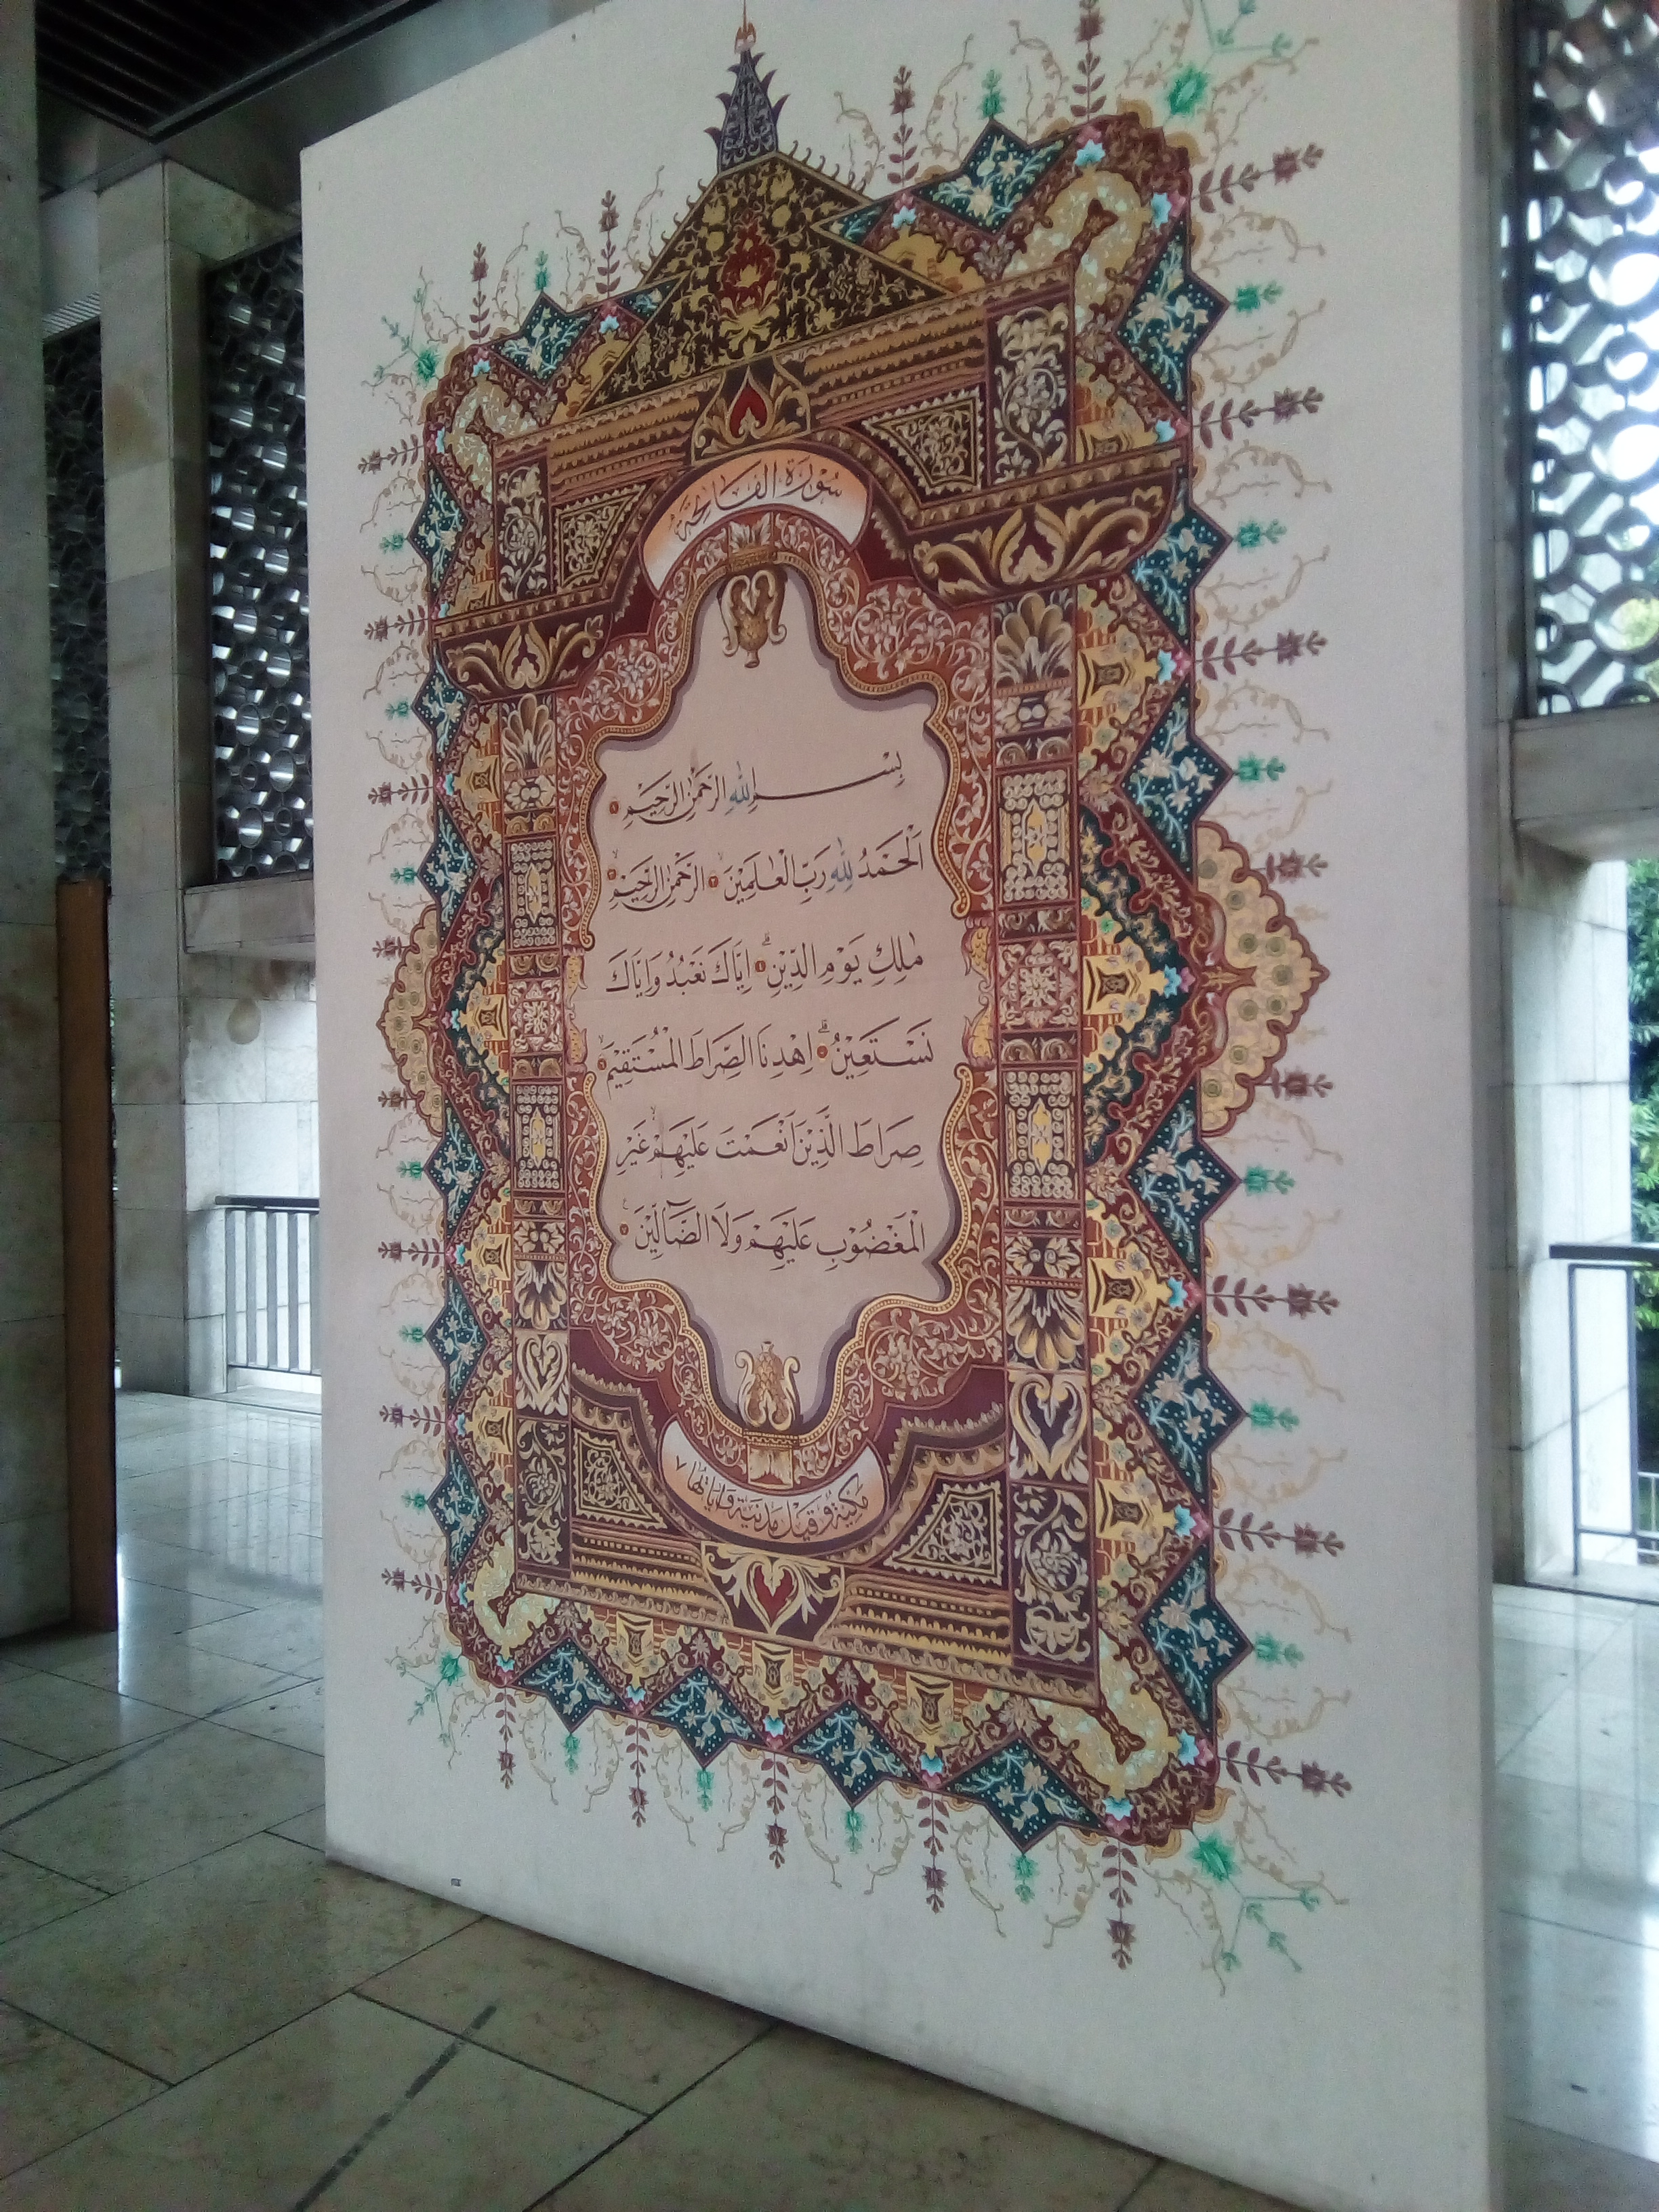 سُوْرَةُ الْفَاتِحَةِ
بِسْمِ اللّٰهِ الرَّحْمٰنِ الرَّحِيْمِ ١
اَلْحَمْدُ لِلّٰهِ رَبِّ الْعٰلَمِيْنَۙ ٢ الرَّحْمٰنِ الرَّحِيْمِۙ ٣
مٰلِكِ يَوْمِ الدِّيْنِۗ ٤ اِيَّاكَ نَعْبُدُ وَاِيَّاكَ
نَسْتَعِيْنُۗ ٥ اِهْدِنَا الصِّرَاطَ الْمُسْتَقِيْمَۙ ٦
صِرَاطَ الَّذِيْنَ اَنْعَمْتَ عَلَيْهِمْۙ غَيْرِ
الْمَغْضُوْبِ عَلَيْهِمْ وَلَا الضَّاۤلِّيْنَ ࣖ ٧
مَكِيَّةٌ وَقِيْلَ مَدَنِيَّةٌ وَاٰيَاتُهَا ٧